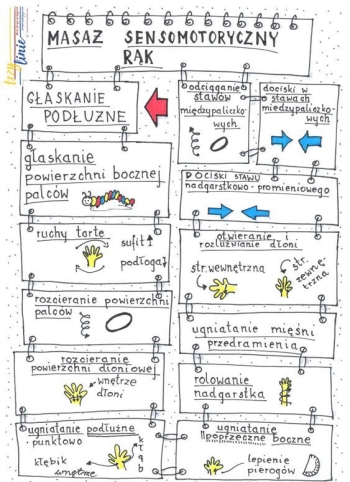 trzy
linie
MASAŻ SENSOMOTORYCZNY
RĄK
GŁASKANIE
PODŁUŻNE
odciąganie
stawów
międzypaliczko-
wych
dociski w
stawach
międzypaliczko-
wych
głaskanie
powierzchni bocznej
palców
DOCISKI STAWU
nadgarstkowo-promieniowego
ruchy tarte
sufit
podłoga
otwieranie i
rozluźnianie dłoni
str. wewnętrzna
str.
zewnę-
trzna
rozcieranie powierzchni
palców
ugniatanie mięśni
przedramienia
rozcieranie
powierzchni dłoniowej
wnętrze
dłoni
rolowanie
nadgarstka
ugniatanie podłużne
punktowo
kłębik
wnętrze
kłąb
ugniatanie
poprzeczne boczne
lepienie
pierogów